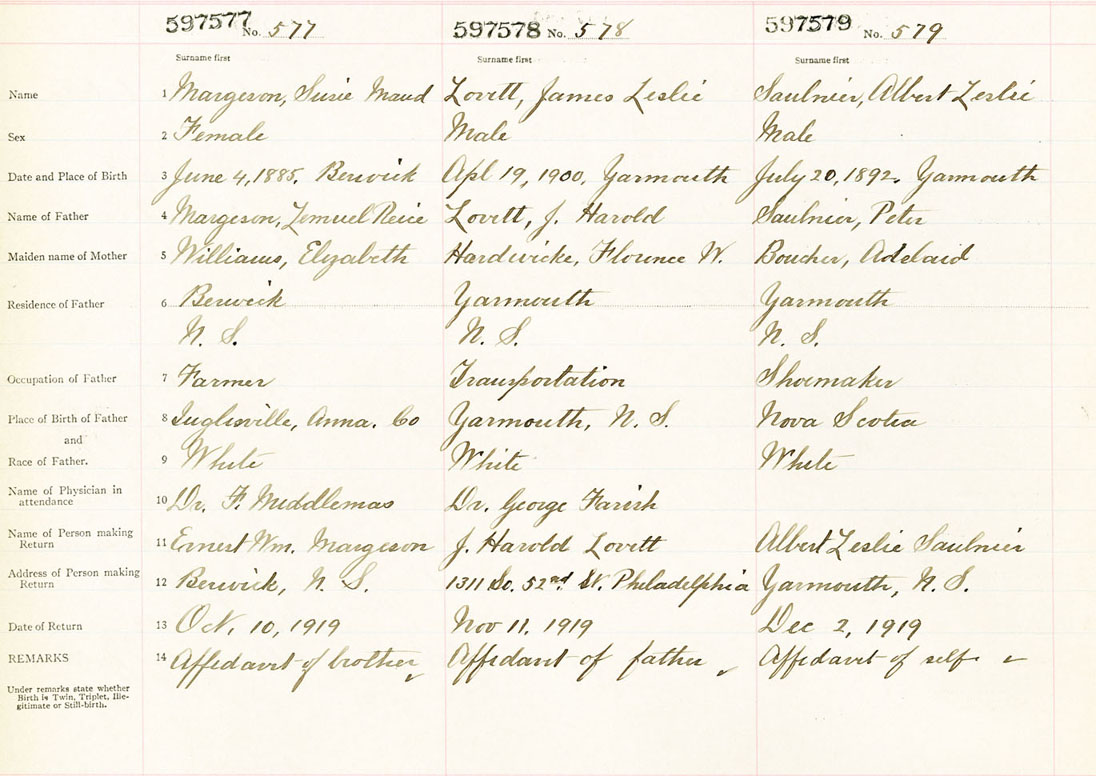 597577 No. 577 597578 No. 578 597579 No. 579
Surname first Surname first Surname first
Name 1 Margeson, Susie Maud Lovitt, James Leslie Saulnier, Albert Leslie
Sex 2 Female Male Male
Date and Place of Birth 3 June 4, 1885, Berwick Apl 19, 1900, Yarmouth July 20, 1892, Yarmouth
Name of Father 4 Margeson, Lemuel Reice Lovitt, J. Harold Saulnier, Peter
Maiden name of Mother 5 Williams, Elyzabeth Hardwicke, Florence W. Boucher, Adelaid
Residence of Father 6 Berwick Yarmouth Yarmouth
N. S. N. S. N. S.
Occupation of Father 7 Farmer Transportation Shoemaker
Place of Birth of Father 8 Inglisville, Anna. Co Yarmouth, N. S. Nova Scotia
and
Race of Father. 9 White White White
Name of Physician in
attendance 10 Dr. F. Middlemas Dr. George Farish
Name of Person making
Return 11 Ernest Wm. Margeson J. Harold Lovitt Albert Leslie Saulnier
Address of Person making
Return 12 Berwick, N. S. 1311 So. 52nd St. Philadelphia Yarmouth, N. S.
Date of Return 13 Oct. 10, 1919 Nov 11, 1919 Dec 2, 1919
REMARKS 14 Affidavit of brother Affidavit of father Affidavit of self
Under remarks state whether
Birth is Twin, Triplet, Ille-
gitimate or Still-birth.